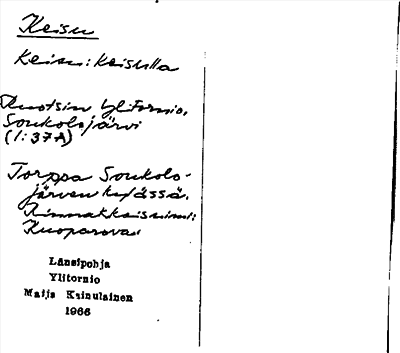 Keisu
Keisu: Keisulla
Ruotsin Ylitornio,
Soukolojärvi
(1:37A)
Torppa Soukolo-
järven kylässä.
Rinnakkaisnimi:
Kuoparova.
Länsipohja
Ylitornio
Maija Kainulainen
1966